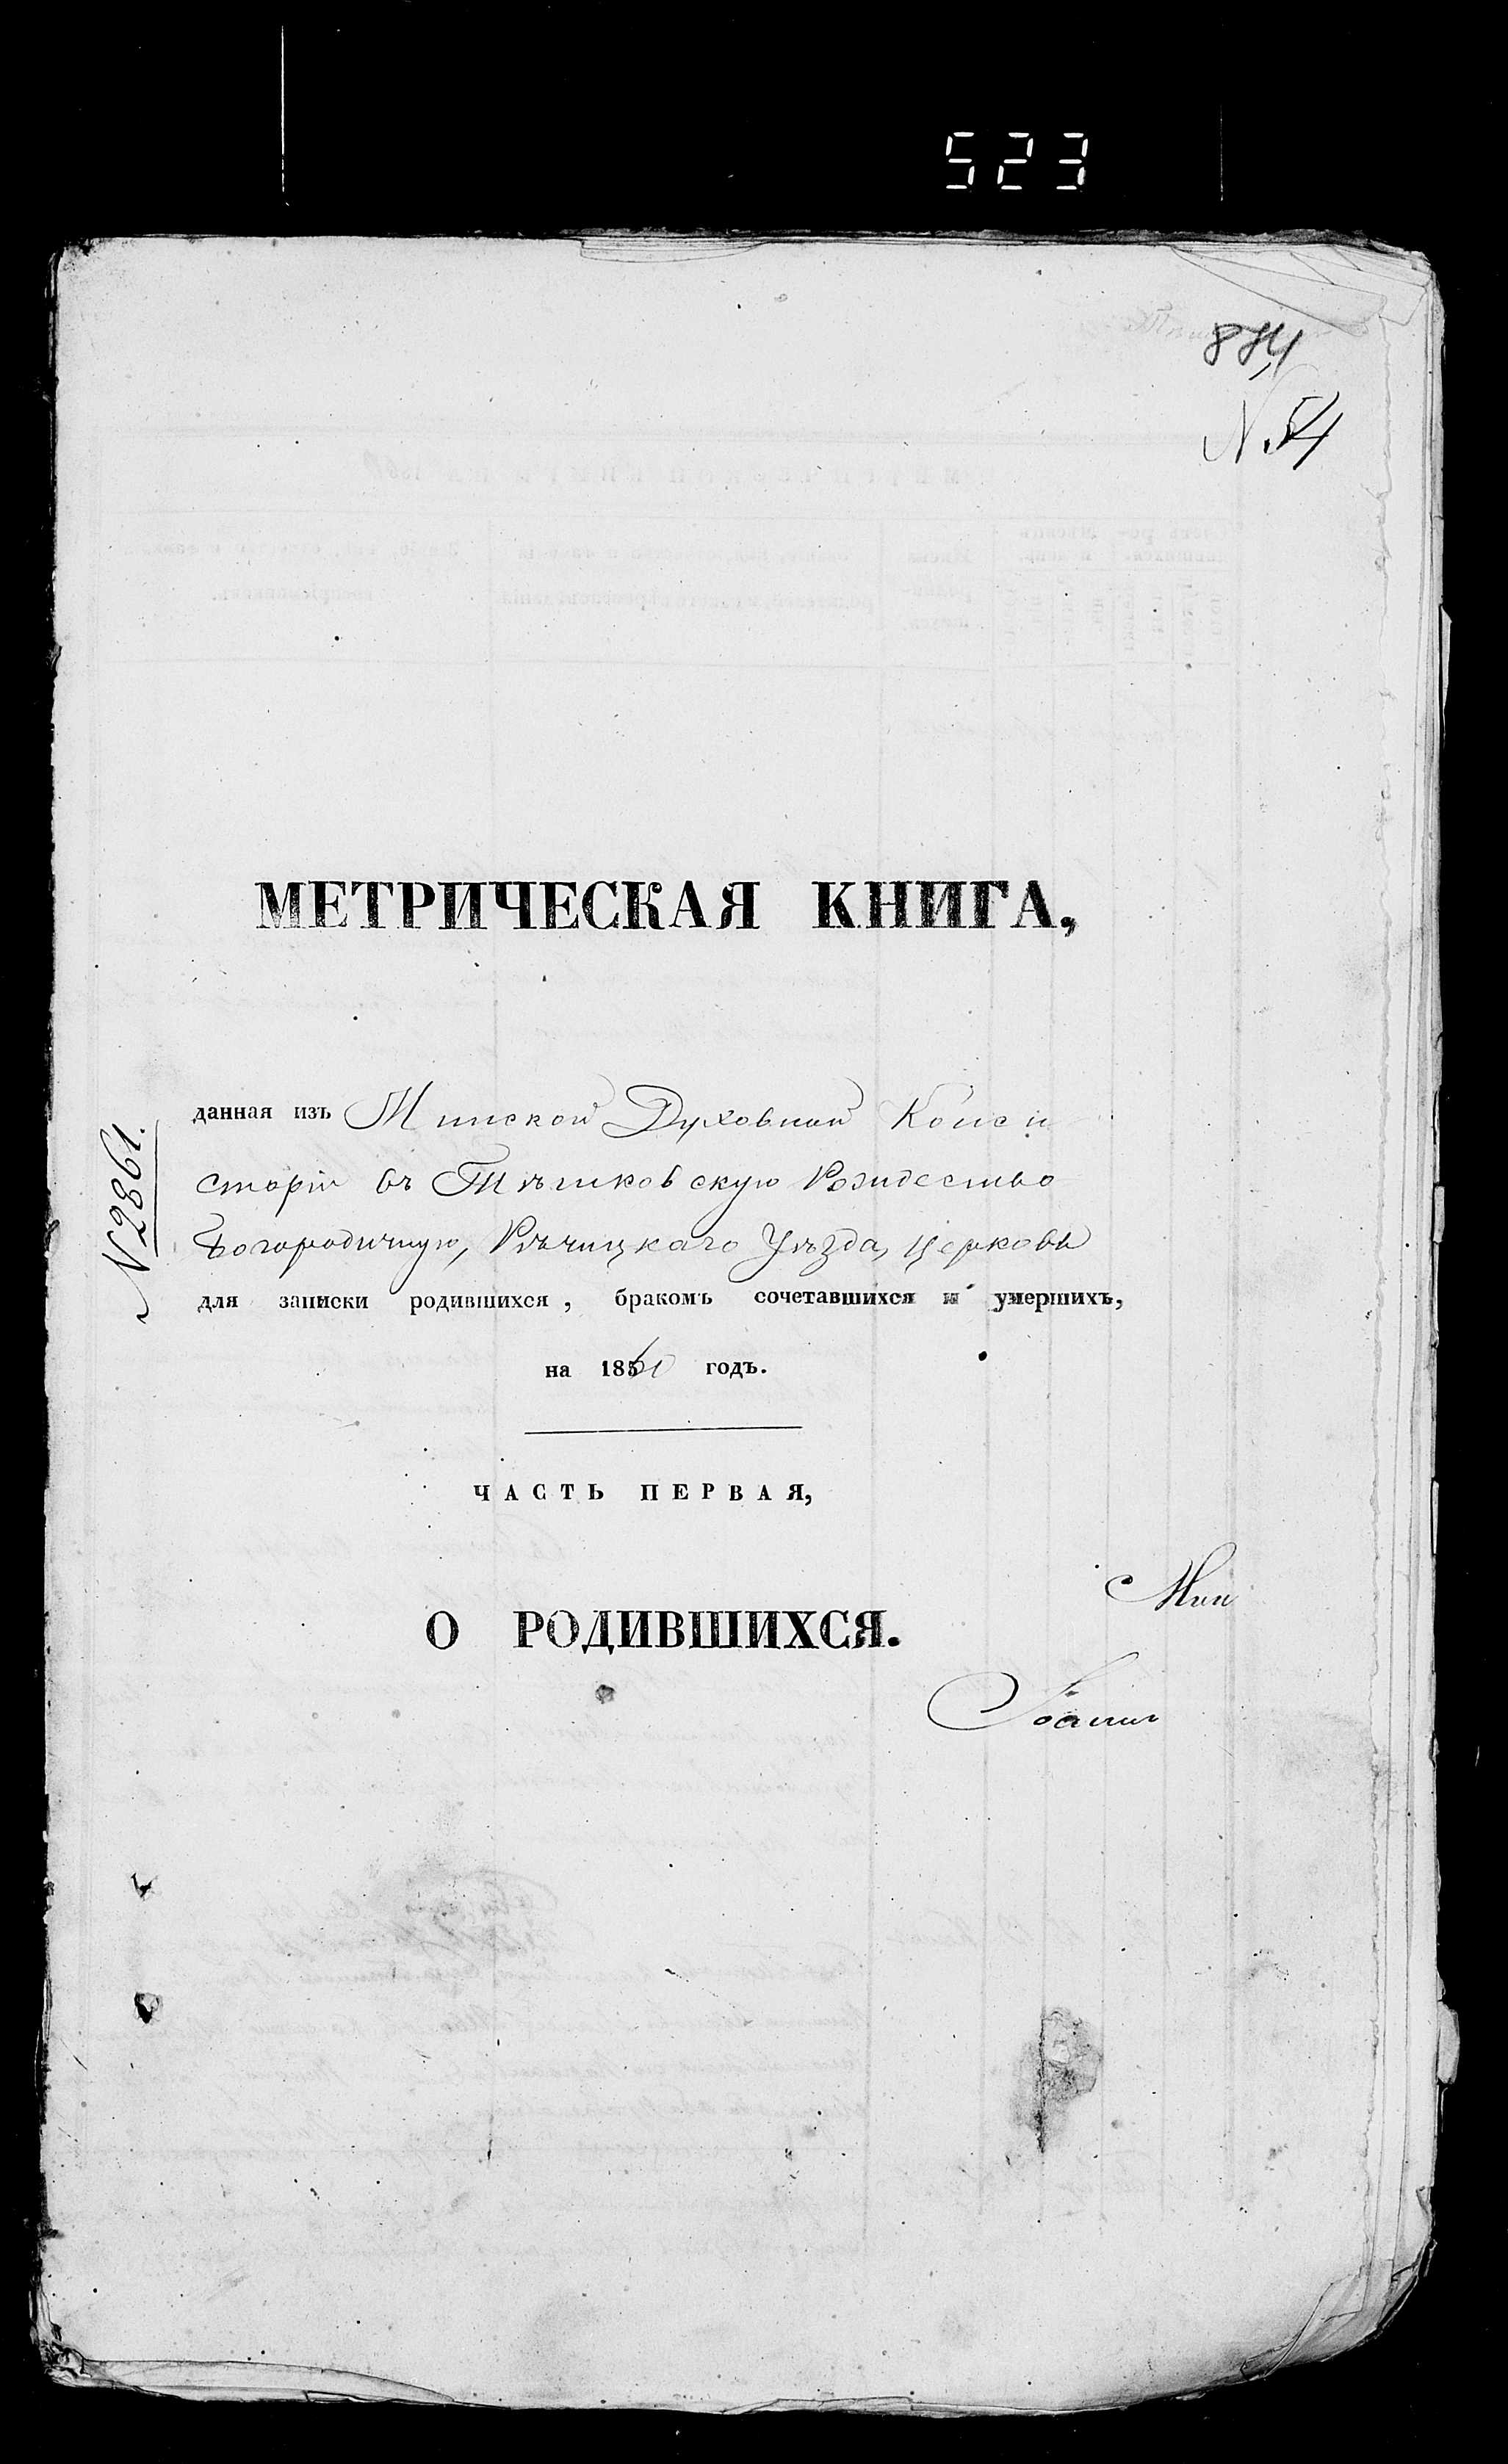 523
884
N. 54
МЕТРИЧЕСКАЯ КНИГА,
N 2861.
данная изъ Минской Духовной Конси
сторіи въ Тѣшковскую Рождество
Богородичную, Рѣчицкаго Уѣзда, церковь
для записки родившихся, бракомъ сочетавшихся и умершихъ,
на 1860 годъ.
ЧАСТЬ ПЕРВАЯ,
О РОДИВШИХСЯ.
Мин
Іоанн